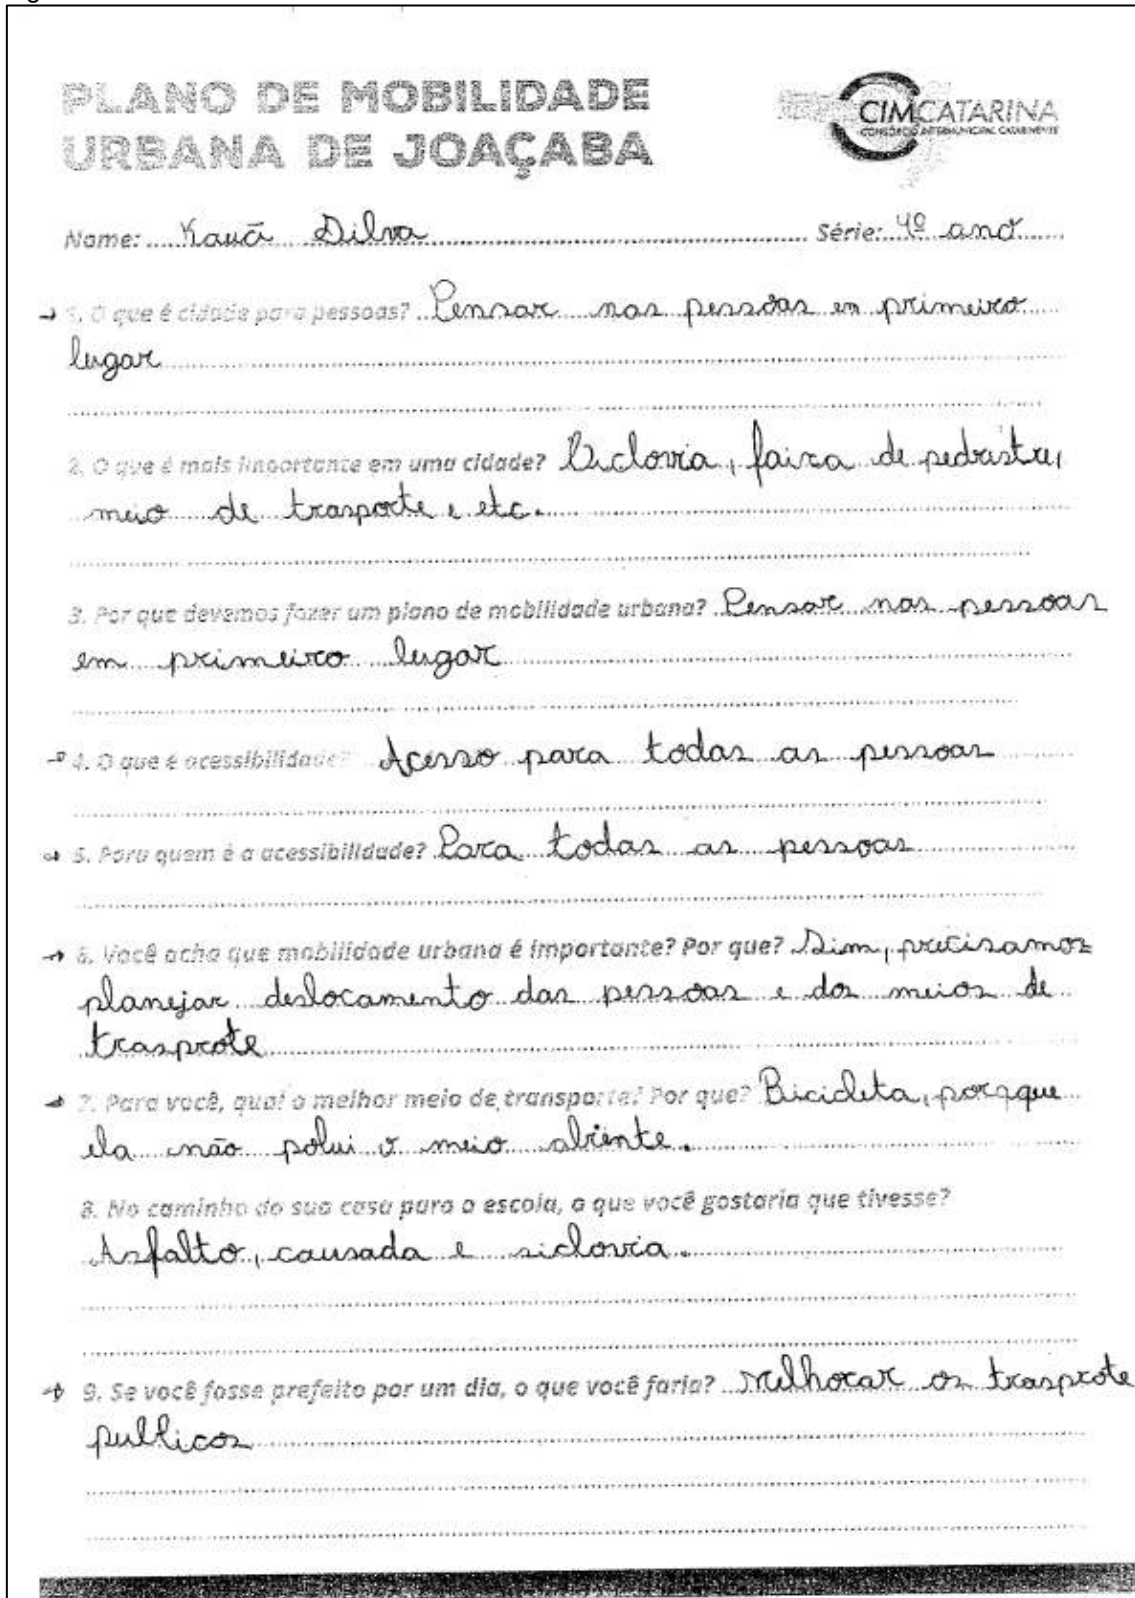 PLANO DE MOBILIDADE
URBANA DE JOAÇABA
CIMCATARINA
CONSÓRCIO INTERMUNICIPAL CATARINENSE
Nome: Kauã Silva Série: 4º ano
1. O que é cidade para pessoas? Pensar nas pessoas em primeiro
lugar
2. O que é mais importante em uma cidade? Ciclovia, faixa de pedristre,
meio de trasporte e etc.
3. Por que devemos fazer um plano de mobilidade urbana? Pensar nas pessoas
em primeiro lugar
4. O que é acessibilidade? Acesso para todas as pessoas
5. Para quem é a acessibilidade? Para todas as pessoas
6. Você acha que mobilidade urbana é importante? Por que? Sim, precisamos
planejar deslocamento das pessoas e dos meios de
trasprote
7. Para você, qual o melhor meio de transporte? Por que? Bicicleta, porqque
ela não polui o meio abiente.
8. No caminho do sua casa para a escola, o que você gostaria que tivesse?
Asfalto, causada e siclovia.
9. Se você fosse prefeito por um dia, o que você faria? Melhorar os trasprote
publicos